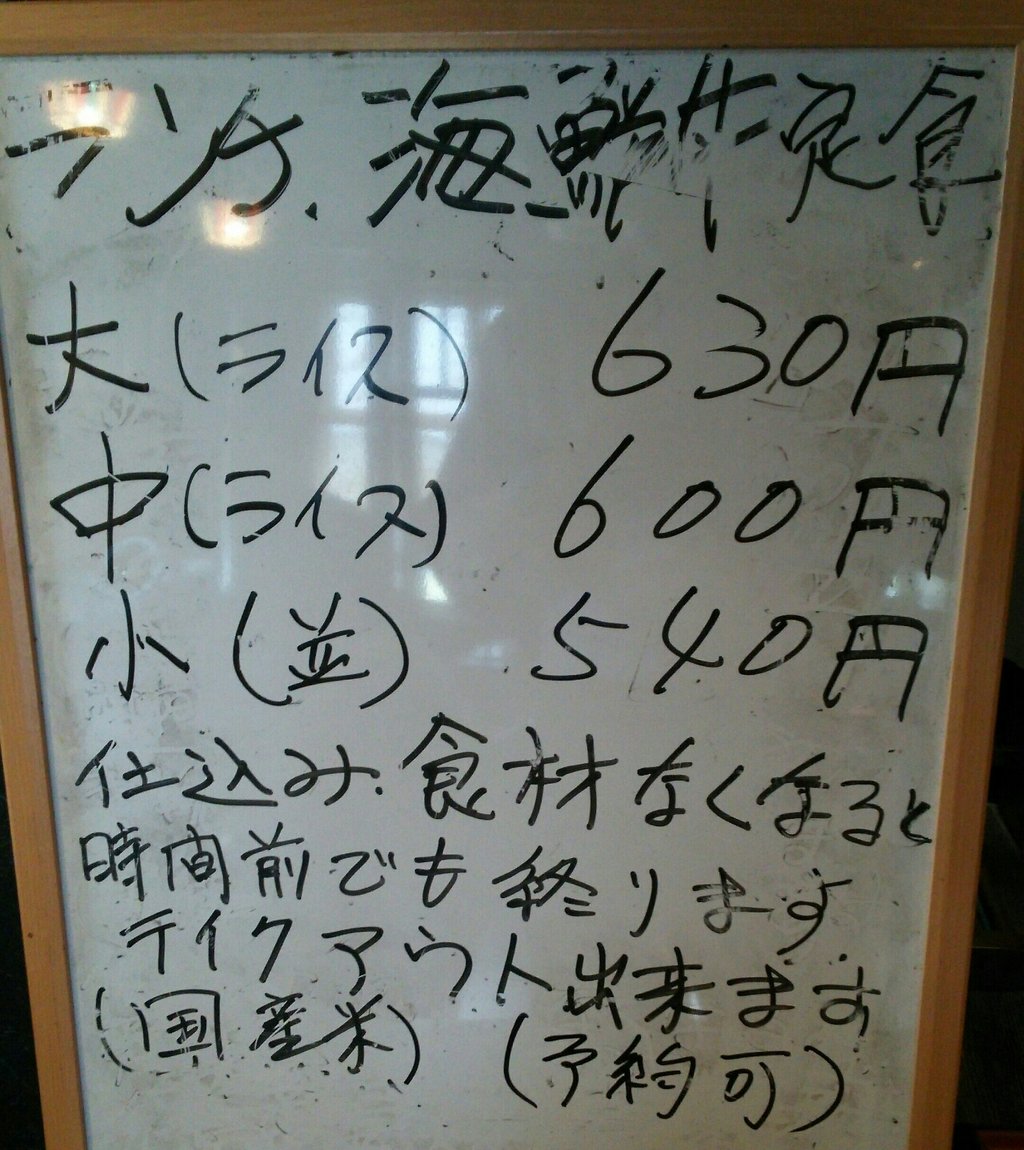 ランチ. 海鮮丼定食
大(ライス) 630円
中(ライス) 600円
小(並) 540円
仕込み. 食材なくなると
時間前でも終ります
テイクアウト出来ます
(国産米) (予約可)